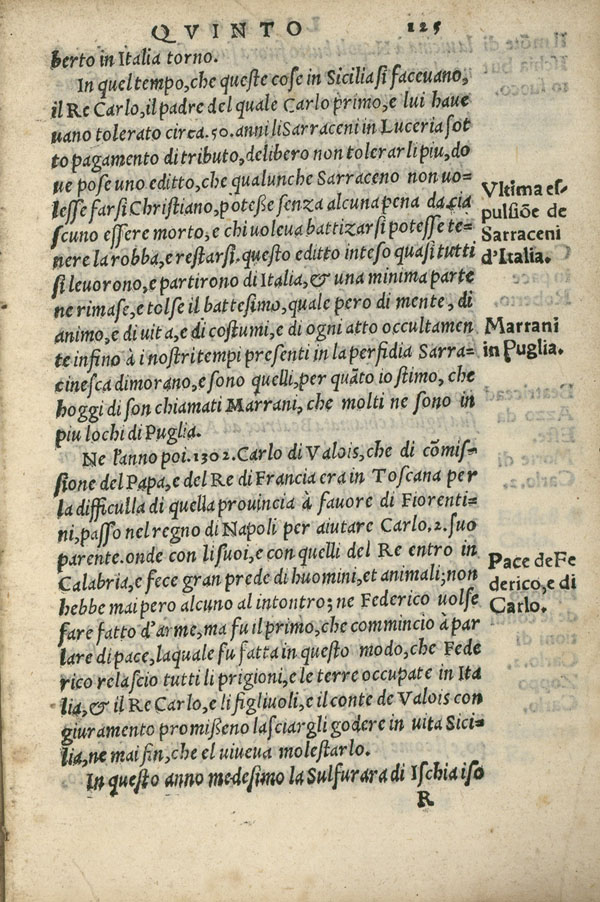 QVINTO 125
berto in Italia torno.
In quel tempo, che queste cose in Sicilia si faceuano,
il Re Carlo, il padre del quale Carlo primo, e lui haue
uano tolerato circa. 50. anni li Sarraceni in Luceria sot
to pagamento di tributo, delibero non tolerarli piu, do
ue pose uno editto, che qualunche Sarraceno non uo-
lesse farsi Christiano, poteße senza alcuna pena da cia
scuno essere morto, e chi uoleua battizarsi potesse te-
nere la robba, e restarsi. questo editto inteso quasi tutti
si leuorono, e partirono di Italia, & una minima parte
ne rimase, e tolse il battesimo, quale pero di mente, di
animo, e di uita, e di costumi, e di ogni atto occultamen
te infino à i nostri tempi presenti in la perfidia Sarra-
cinesca dimorano, e sono quelli, per quãto io stimo, che
hoggi di son chiamati Marrani, che molti ne sono in
piu lochi di Puglia.
Ne l'anno poi. 1302. Carlo di Valois, che di cõmis-
sione del Papa, e del Re di Francia era in Toscana per
la difficulla di quella prouincia à fauore di Fiorenti-
ni, passo nel regno di Napoli per aiutare Carlo. 2. suo
parente. onde con li suoi, e con quelli del Re entro in
Calabria, e fece gran prede di huomini, et animali; non
hebbe mai pero alcuno al intontro; ne Federico uolse
fare fatto d'arme, ma fu il primo, che commincio à par
lare di pace, laquale fu fatta in questo modo, che Fede
rico relascio tutti li prigioni, e le terre occupate in Ita
lia, & il Re Carlo, e li figliuoli, e il conte de Valois con
giuramento promißeno lasciargli godere in uita Sici-
lia, ne mai fin, che el uiueua molestarlo.
In questo anno medesimo la Sulfurara di Ischia iso
R
Vltima es-
pulsiõe de
Sarraceni
d'Italia.
Marrani
in Puglia.
Pace de Fe
derico, e di
Carlo.